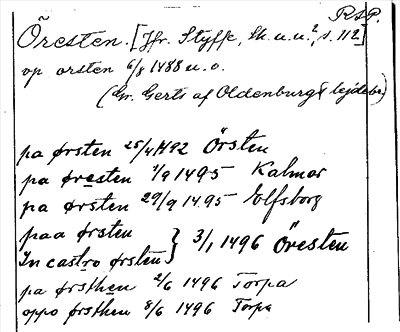 R.S.P.
Öresten. [Jfr. Styffe, Sk. u. u.², s. 112]
op orsten 6/8 1488 u. o.
(Gr. Gerts af Oldenburgs lejdebr)
pa ørsten 25/4 1492 Örsten
pa øresten 1/9 1495 Kalmar
pa ørsten 29/9 1495 Elfsborg
paa ørsten
In castro ørsten } 3/1 1496 Öresten
pa ørsthen 2/6 1496 Torpa
oppo ørsthen 8/6 1496 Torpa